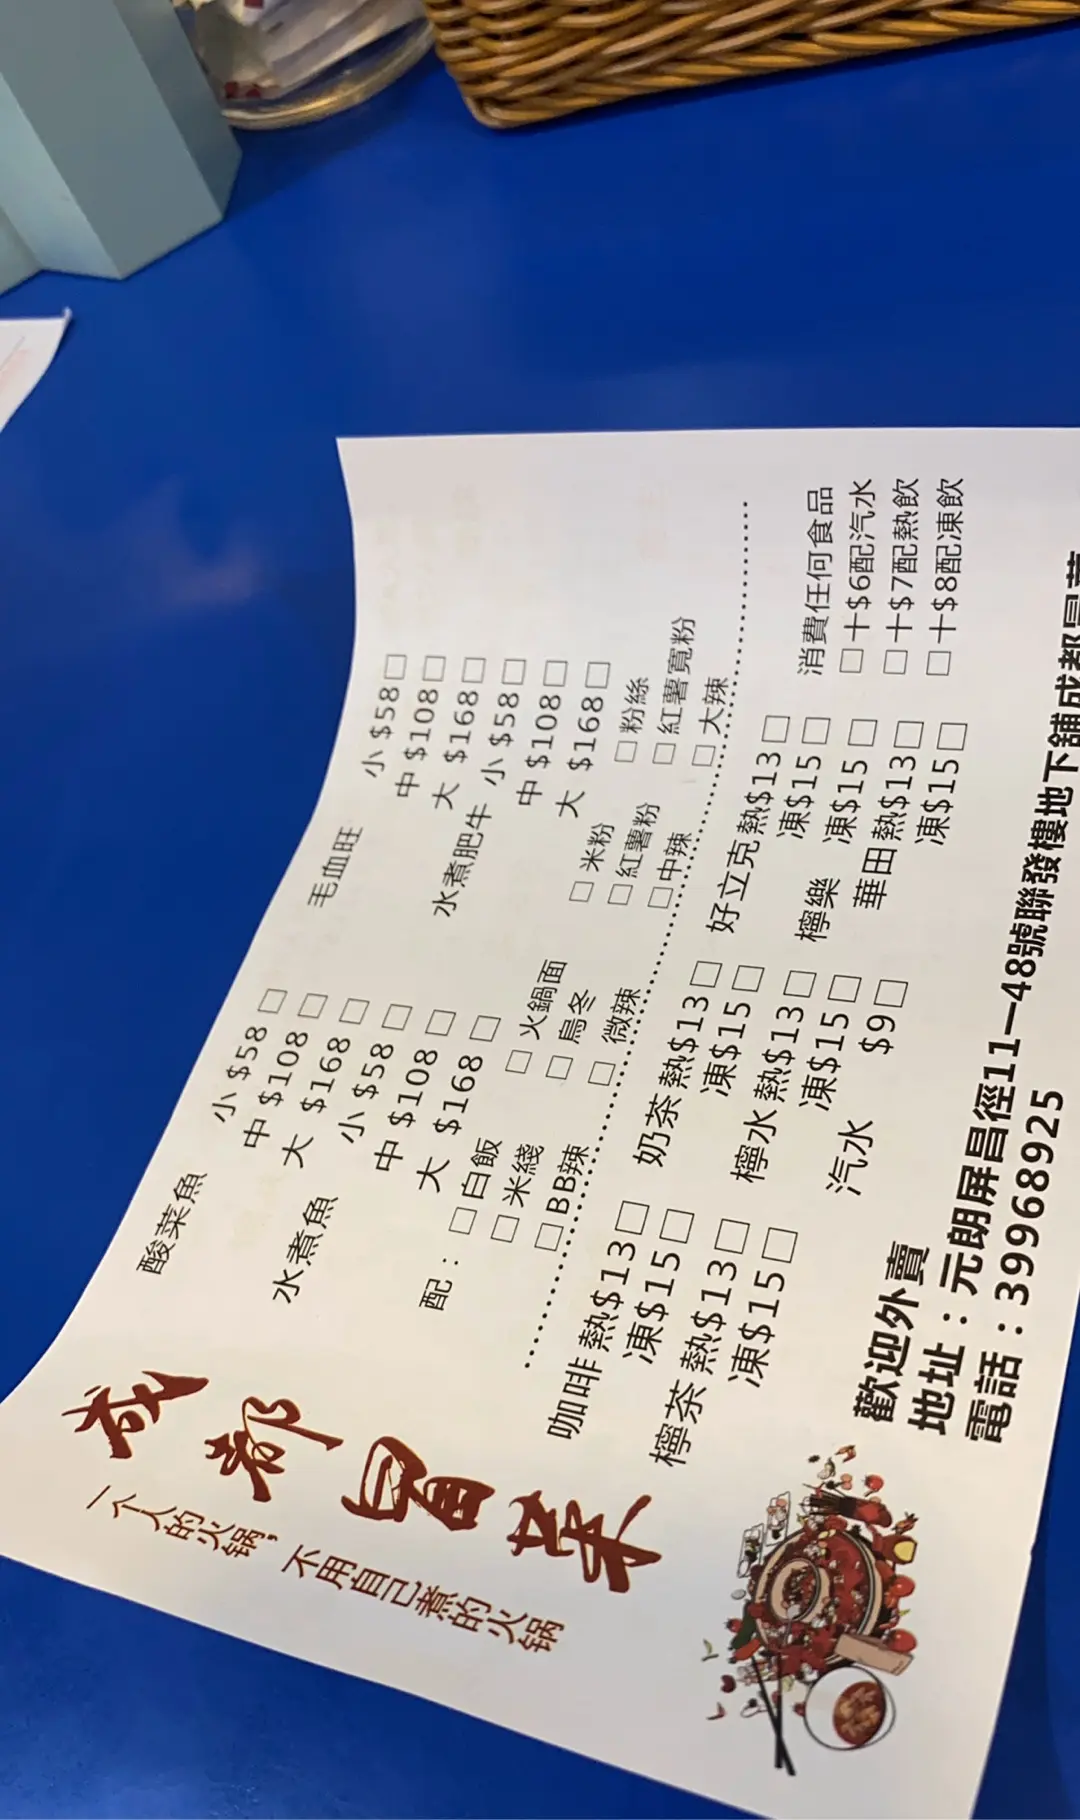 成都冒菜
一个人的火锅，不用自己煮的火锅
酸菜魚 小 $58□ 毛血旺 小 $58□
中 $108□ 中 $108□
大 $168□ 大 $168□
水煮魚 小 $58□ 水煮肥牛 小 $58□
中 $108□ 中 $108□
大 $168□ 大 $168□
配：□白飯 □火鍋面 □米粉 □粉絲
□米綫 □烏冬 □紅薯粉 □紅薯寬粉
□BB辣 □微辣 □中辣 □大辣
咖啡 熱$13□ 奶茶 熱$13□ 好立克 熱$13□ 消費任何食品
凍$15□ 凍$15□ 凍$15□ □十$6配汽水
檸茶 熱$13□ 檸水 熱$13□ 檸樂 凍$15□ □十$7配熱飲
凍$15□ 凍$15□ 華田 熱$13□ □十$8配凍飲
汽水 $9□ 凍$15□
歡迎外賣
地址：元朗屏昌徑11一48號聯發樓地下舖成都
電話：39968925